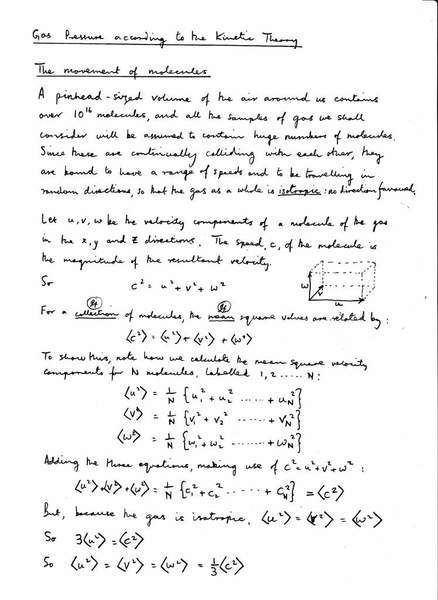 Gas Pressure according to the Kinetic Theory
The movement of molecules
A pinhead-sized volume of the air around us contains
over 10¹⁶ molecules, and all the samples of gas we shall
consider will be assumed to contain huge numbers of molecules.
Since these are continually colliding with each other, they
are bound to have a range of speeds and to be travelling in
random directions, so that the gas as a whole is isotropic: no direction favoured.
Let u, v, w be the velocity components of a molecule of the gas
in the x, y and z directions. The speed, c, of the molecule is
the magnitude of the resultant velocity.
So c² = u² + v² + w²
w v u
For a collection of molecules, the mean square values are related by:
⟨c²⟩ = ⟨u²⟩ + ⟨v²⟩ + ⟨w²⟩
To show this, note how we calculate the mean square velocity
components for N molecules, labelled 1, 2 ..... N:
⟨u²⟩ = 1/N {u₁² + u₂² ...... + u_N²}
⟨v²⟩ = 1/N {v₁² + v₂² ...... + v_N²}
⟨w²⟩ = 1/N {w₁² + w₂² ...... + w_N²}
Adding the three equations, making use of c² = u² + v² + w²:
⟨u²⟩ + ⟨v²⟩ + ⟨w²⟩ = 1/N {c₁² + c₂² ...... + c_N²} = ⟨c²⟩
But, because the gas is isotropic, ⟨u²⟩ = ⟨v²⟩ = ⟨w²⟩
So 3⟨u²⟩ = ⟨c²⟩
So ⟨u²⟩ = ⟨v²⟩ = ⟨w²⟩ = 1/3 ⟨c²⟩